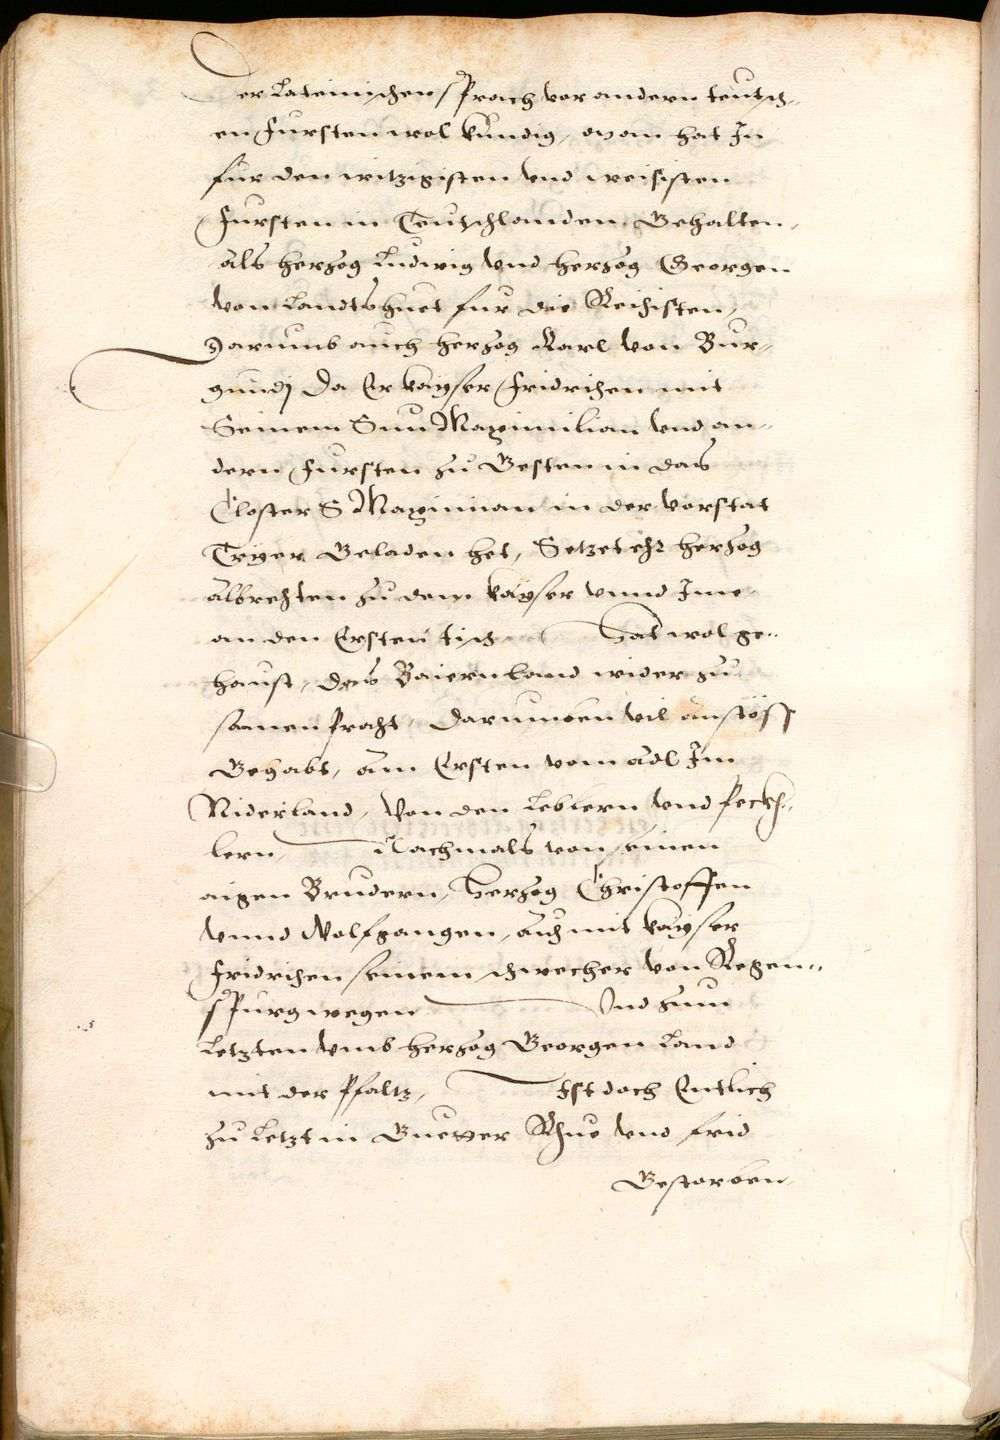 Der Lateinischen sprach vor andern teutsch-
en Fursten wol kundig, man hat In
fur den witzigisten vnd weisisten
Fursten in Teutschlanden Gehalten,
als Hertzog Ludwig vnd Hertzog Georgen
von Landtshuet fur die Reichisten,
Darumb auch Hertzog Karl von Bur-
gundj Da Er kayser Fridrichen mit
Seinem Sun Maximilian vnd an-
dern Fursten zu Gesten in das
Closter S Maximian in der vorstat
Tryer Geladen het, Setzet ehr Hertzog
albrechten zu dem kayser vnnd Ime
an den Ersten tisch Hat wol ge-
haust, das Baiernland wider zu
samen pracht, Darumben vil anstöss
Gehabt, am Ersten vom adl Im
Niderland, Von den Leblern vnd Peckh-
lern, Nachmals von seinen
aigen Brudern, Hertzog Christoffen
vnnd Wolfgangen, auch mit kayser
Fridrichen seinem schwecher von Regen-
spurg wegen Vnd zum
Letzten vmb Hertzog Georgen Land
mit der Pfaltz, Ist doch Entlich
zu Letzt in Gueter Rhue vnd frid
Gestorben